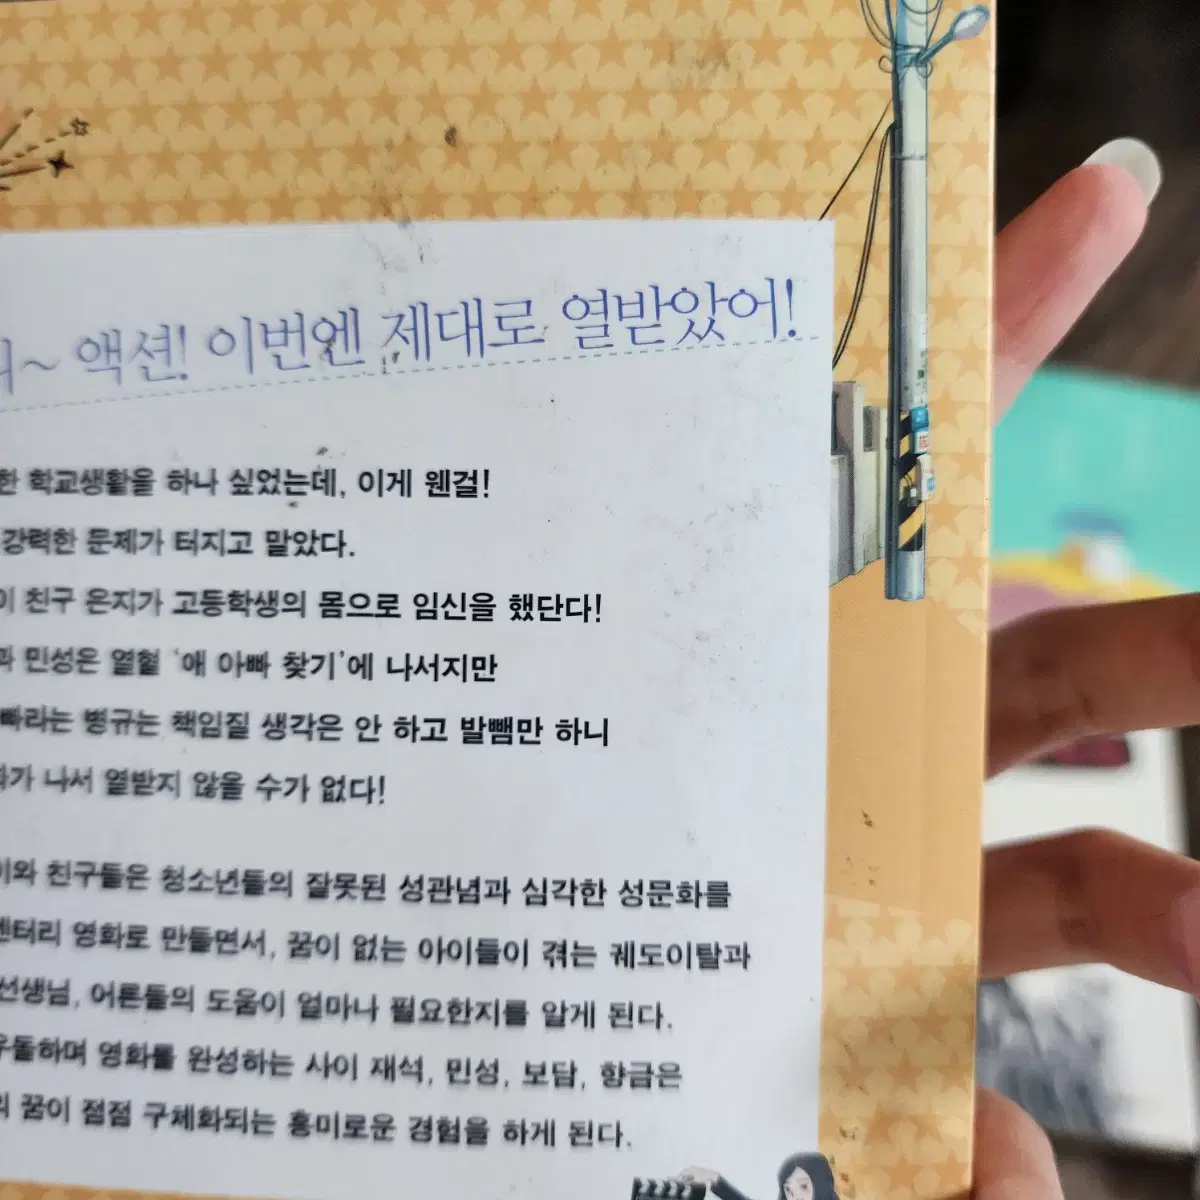 ~ 액션! 이번엔 제대로 열받았어!
한 학교생활을 하나 싶었는데, 이게 웬걸!
강력한 문제가 터지고 말았다.
이 친구 은지가 고등학생의 몸으로 임신을 했단다!
과 민성은 열혈 ‘애 아빠 찾기’에 나서지만
빠라는 병규는 책임질 생각은 안 하고 발뺌만 하니
가 나서 열받지 않을 수가 없다!
이와 친구들은 청소년들의 잘못된 성관념과 심각한 성문화를
멘터리 영화로 만들면서, 꿈이 없는 아이들이 겪는 궤도이탈과
선생님, 어른들의 도움이 얼마나 필요한지를 알게 된다.
우돌하며 영화를 완성하는 사이 재석, 민성, 보담, 향금은
의 꿈이 점점 구체화되는 흥미로운 경험을 하게 된다.